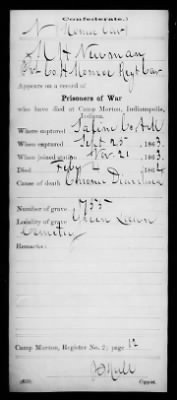 (Confederate.)
N (Monroe Cav)
M H Newman
Pvt Co H Monroe Regt Cav
Appears on a record of
Prisoners of War
who have died at Camp Morton, Indianapolis,
Indiana.
Where captured Saline Co Ark
When captured Sept 25, 1863.
When joined station Nov 21, 1863.
Died Feby 2, 1864
Cause of death Chronic Diarrhoea
Number of grave 755
Locality of grave Green Lawn
Cemetery
Remarks:
Camp Morton, Register No. 2; page 12
(639)
Copyist.